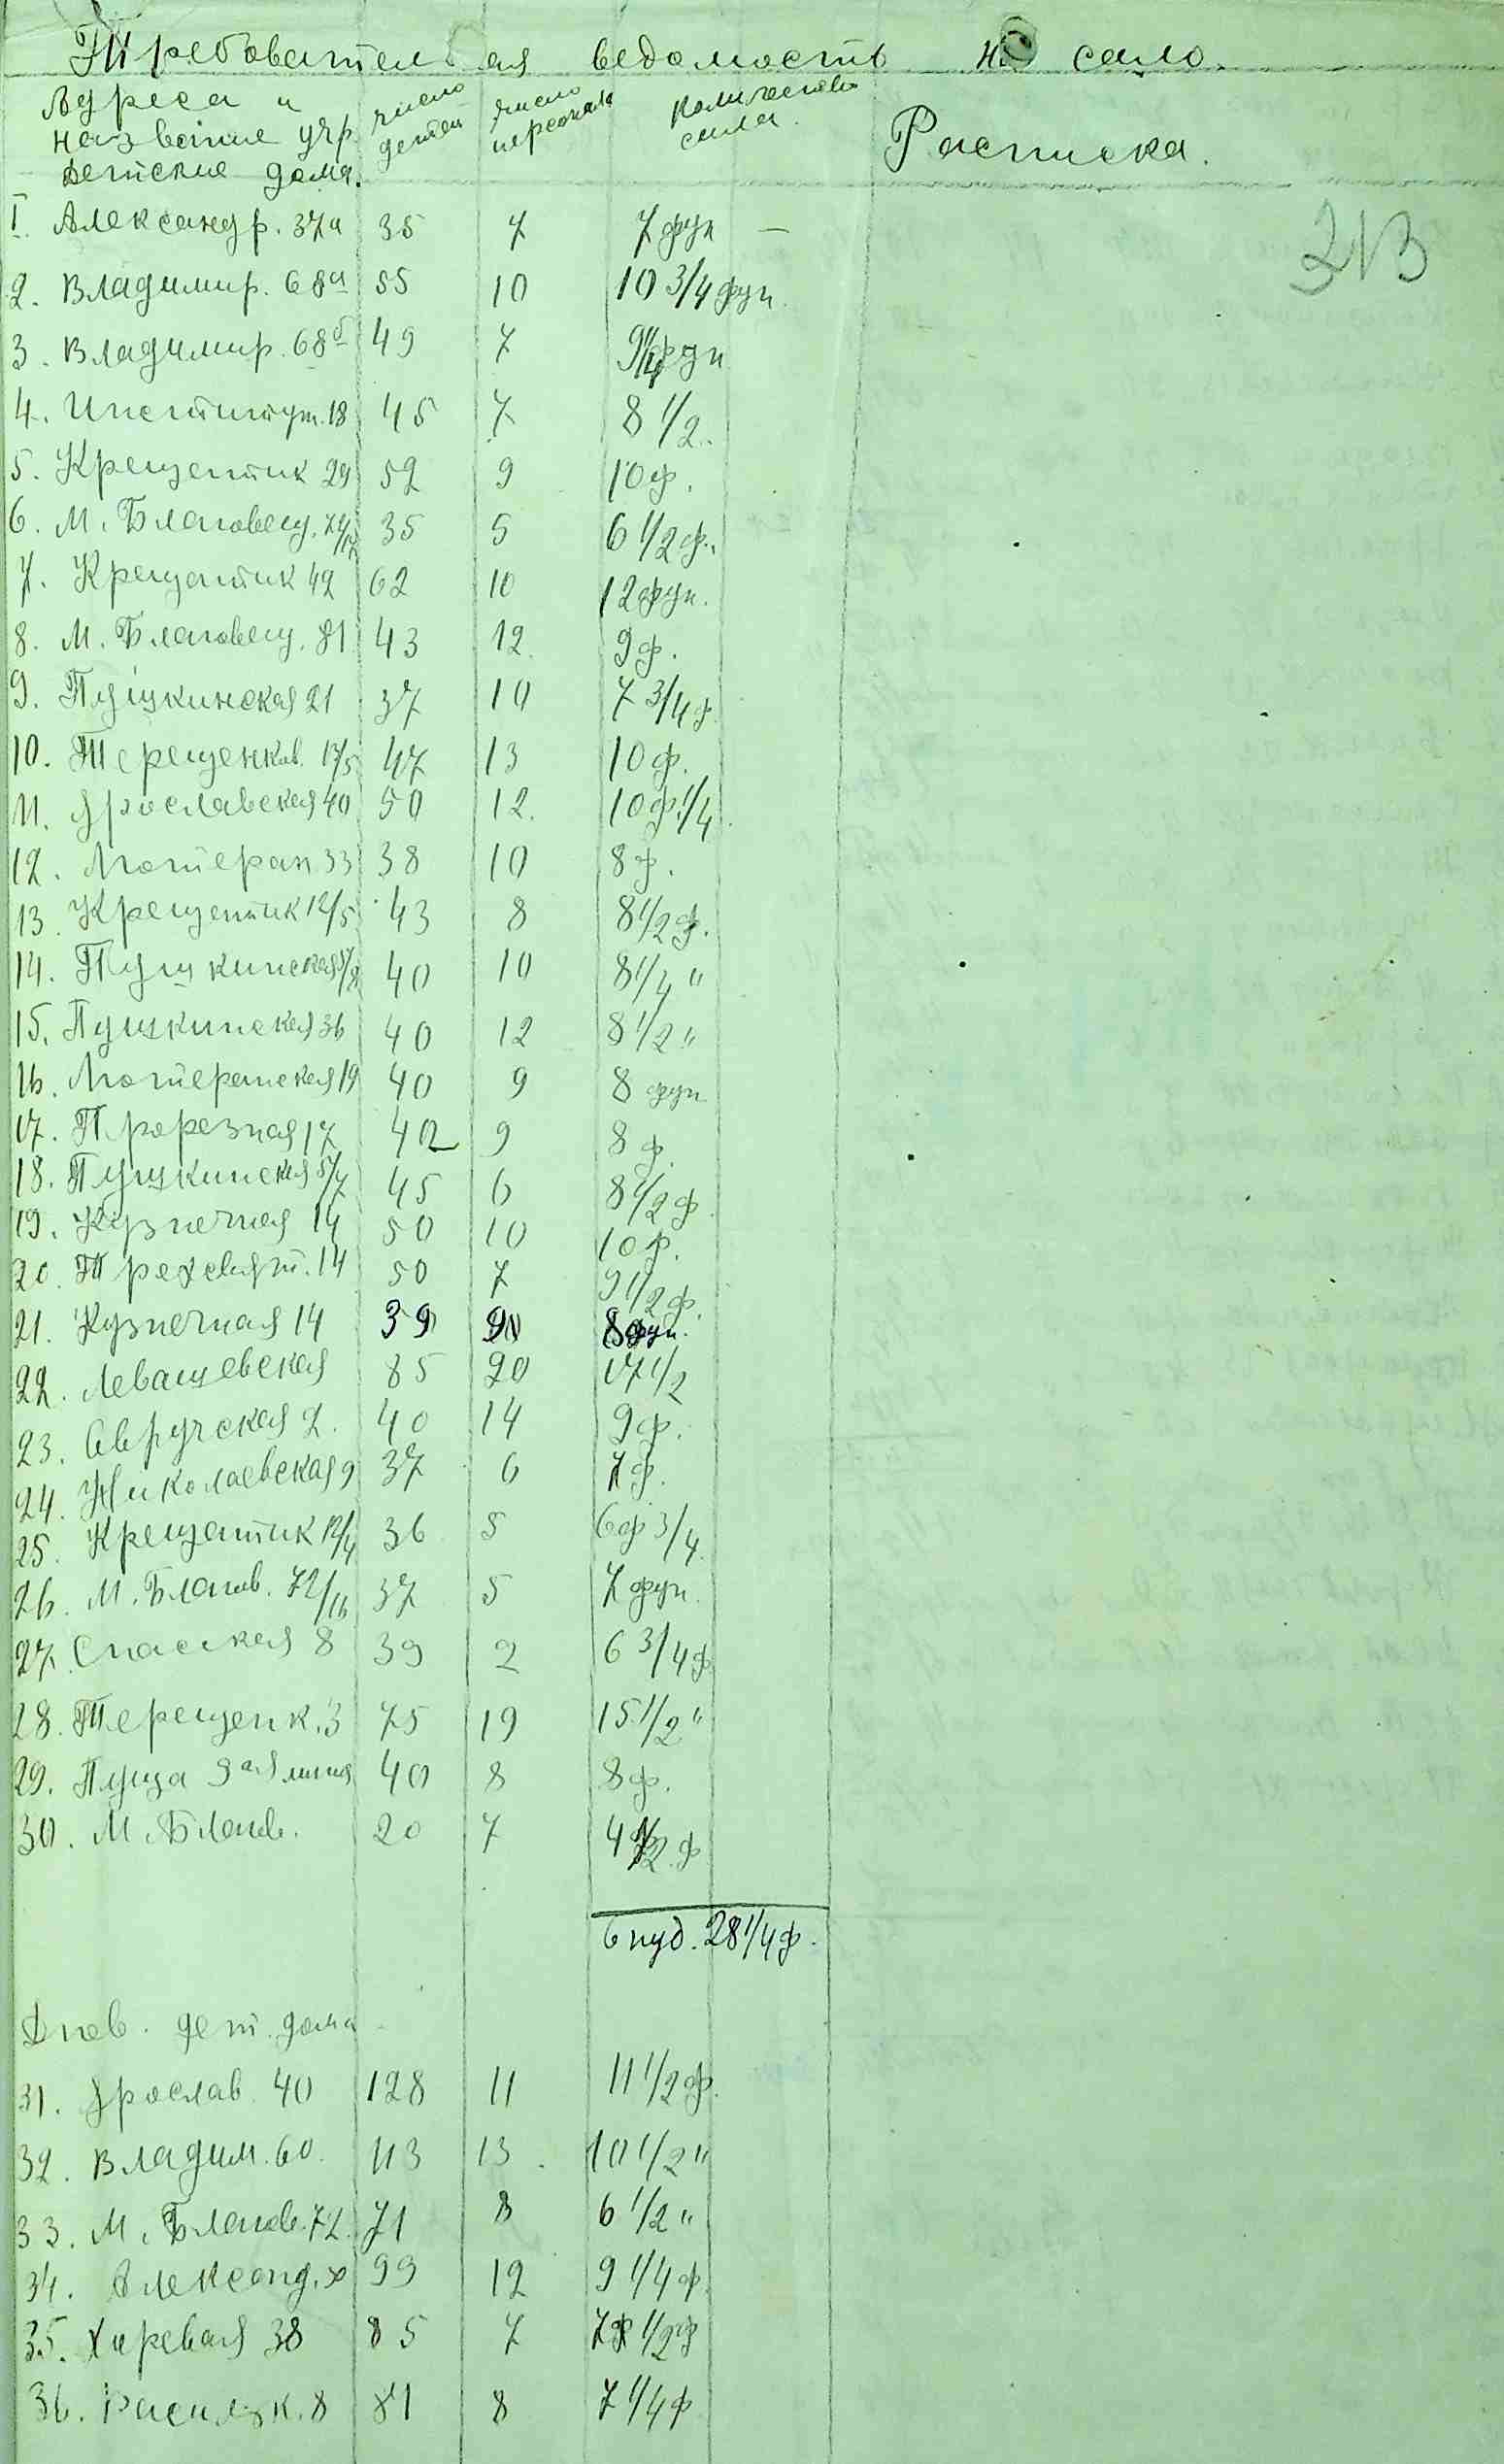 Требовательная ведомость на сало.
Адреса и название учр. детские дома.
число детей
число персонала
количество сала.
Расписка.
313
I. Александр. 37а 35 7 7 фун —
2. Владимир. 68а 55 10 10 3/4 фун.
3. Владимир. 68б 49 7 9 1/4 фун
4. Институт. 18 45 7 8 1/2.
5. Крещатик 29 52 9 10 ф.
6. М. Благовещ. 74/17 35 5 6 1/2 ф.
7. Крещатик 42 62 10 12 фун.
8. М. Благовещ. 81 43 12. 9 ф.
9. Пушкинская 21 37 10 7 3/4 ф.
10. Терещенков. 13/5 47 13 10 ф.
11. Ярославская 40 50 12. 10 ф 1/4.
12. Лютеран 33 38 10 8 ф.
13. Крещатик 12/5 43 8 8 1/2 ф.
14. Пушкинская 40 10 8 1/4 "
15. Пушкинская 36 40 12 8 1/2 "
16. Лютеранская 19 40 9 8 фун
17. Прорезная 17 42 9 8 ф.
18. Пушкинская 5/7 45 6 8 1/2 ф.
19. Кузнечная 14 50 10 10 ф.
20. Трехсвят. 14 50 7 9 1/2 ф.
21. Кузнечная 14 39 8 фун.
22. Левашевская 85 20 17 1/2
23. Овручская 2. 40 14 9 ф.
24. Николаевская 9 37 6 7 ф.
25. Крещатик 12/4 36 5 6 ф 3/4.
26. М. Благов. 72/16 37 5 7 фун.
27. Спасская 8 39 2 6 3/4 ф
28. Терещенк. 3 75 19 15 1/2 "
29. Пуща 9ая линия 40 8 8 ф.
30. М. Благов. 20 7 4 1/2 ф
6 пуд. 28 1/4 ф.
Днев. дет. дома
31. Ярослав. 40 128 11 11 1/2 ф.
32. Владим. 60. 113 13. 10 1/2 "
33. М. Благов. 72. 71 8 6 1/2 "
34. Александ. 99 12 9 1/4 ф.
35. Хоревая 38 85 7 7 1/2 ф
36. 8 81 8 7 1/4 ф